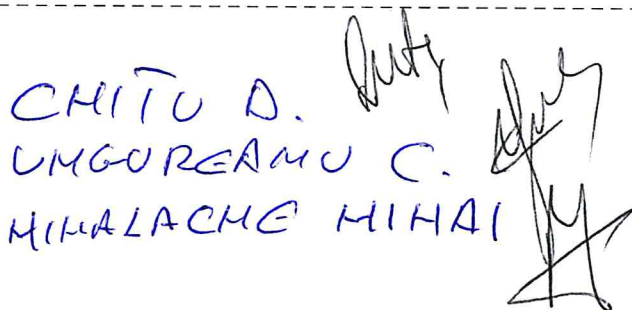 CHITU D.
UNGUREANU C.
MIHALACHE MIHAI